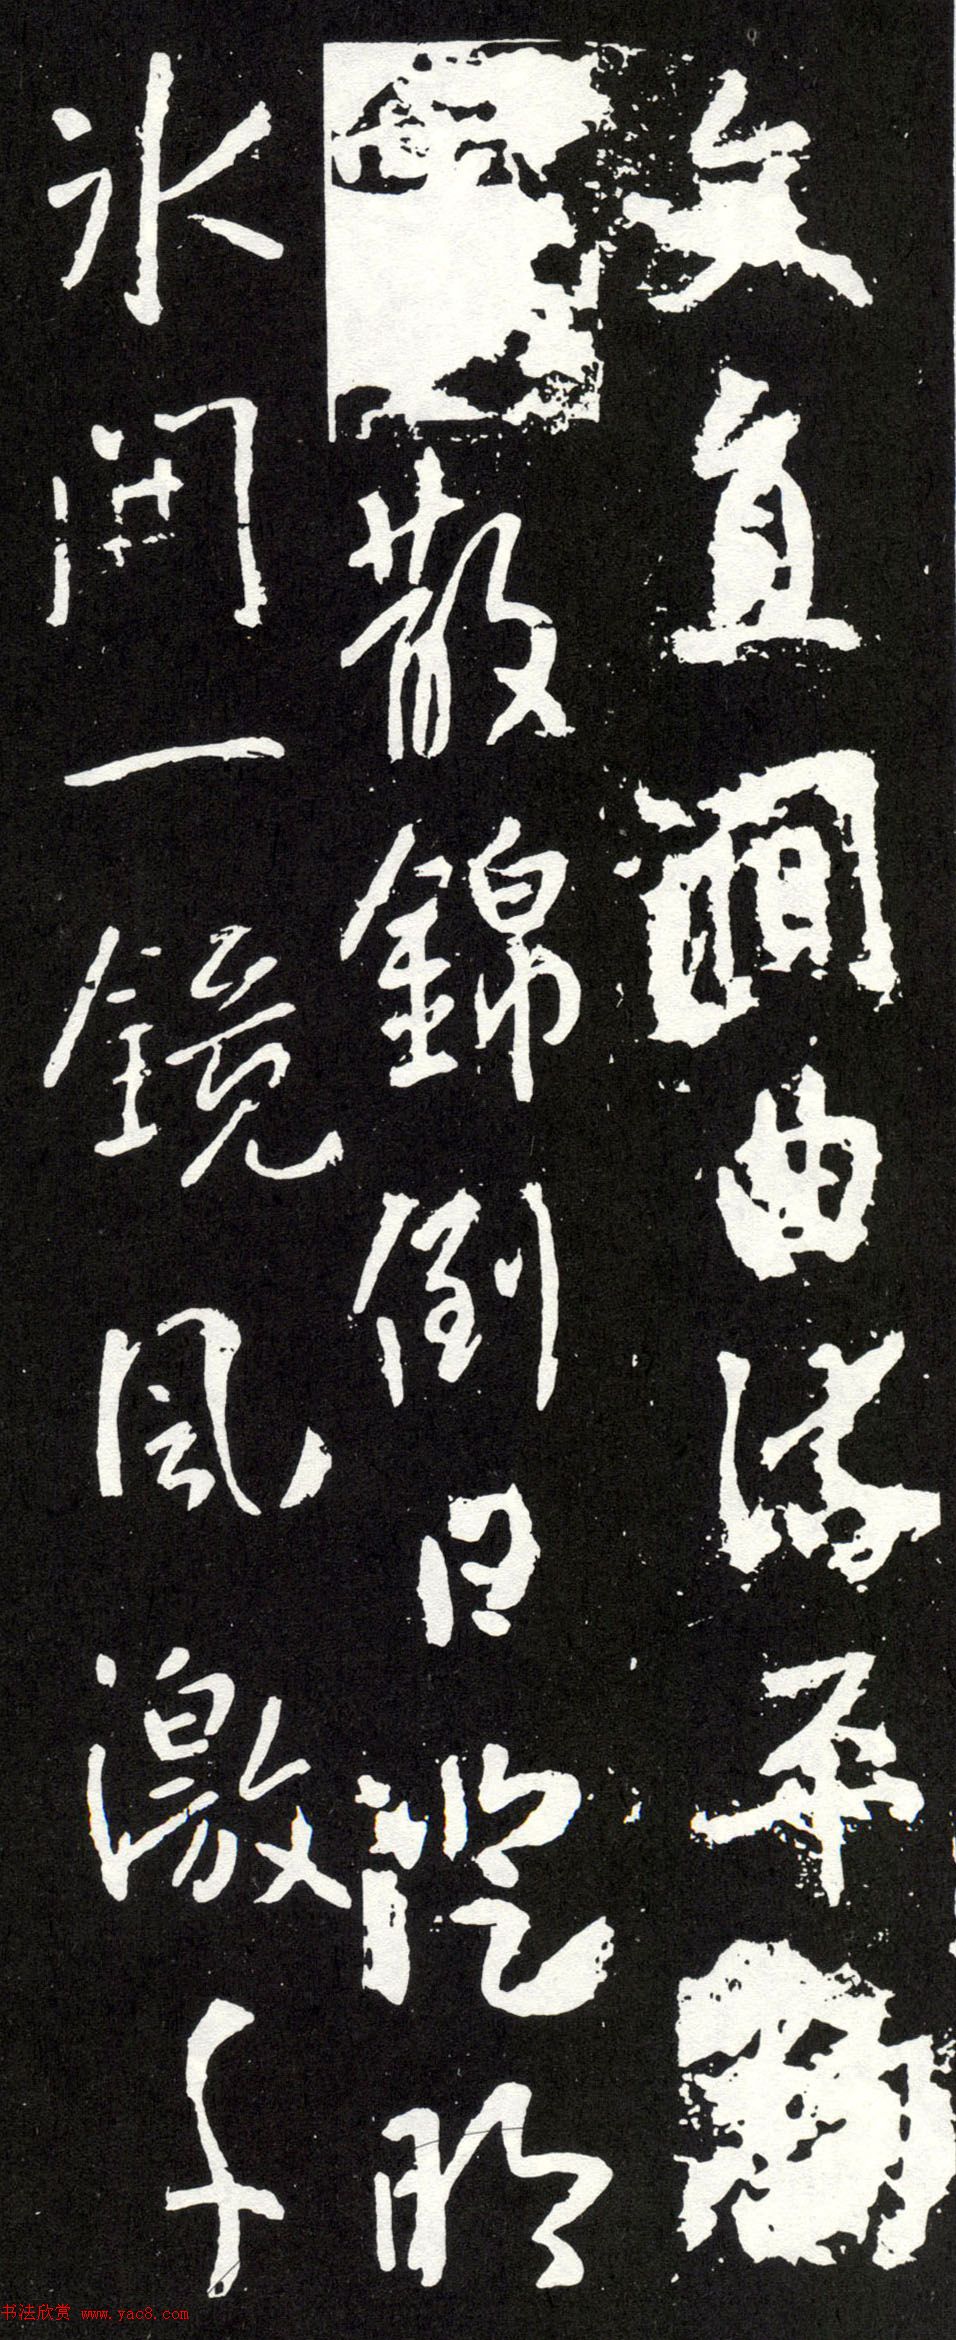 文直澗曲海平
散錦倒日澄明
氷開一鏡風激千
书法欣赏 www.yac8.com